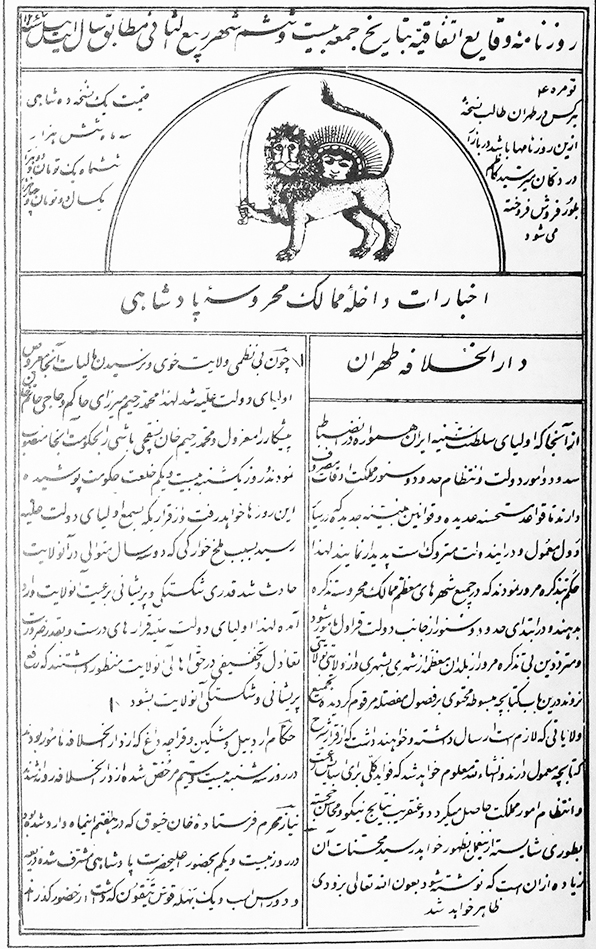 روزنامه وقایع اتفاقیه بتاریخ جمعه بیست و ششم شهر ربیع الثانی مطابق سال ایت ئیل سنه ۱۲۶۷
نومره ۴
هرکس در طهران طالب نسخهٔ
ازین روزنامها باشد در بازار
در دکان میرسید کاظم
بلور فروش فروخته
می شود
قیمت یک نسخه ده شاهی
سه ماه شش هزار
ششماه یک تومان و دو هزار
یکسال دو تومان و چهار هزار
اخبارات داخلهٔ ممالک محروسهٔ پادشاهی
دارالخلافه طهران
از آنجا که اولیای سلطنت سنیه ایران همواره در انضباط
سدود و امور دولت و انتظام حدود و سنور مملکت دقت مصروف
دارند تا قواعد مستحسنه عدیده و قوانین مبینه جدیده که در سایر
دول معمول و در ایندولت متروک است پدیدار نمایند لهذا
حکم تذکره مرور نمودند که در جمیع شهرهای معظم ممالک محروسه تذکره
بدهند و در ابتدای حدود و سنور از جانب دولت قراول
و مترددین بی تذکره مرور از بلدان معظمه از شهری بشهری و از ولایتی بولایتی
نروند درین باب کتابچه مبسوطه محتوی بر فصول مفصله مرقوم کرده بجمیع
ولایاتی که لازم است ارسال داشته و خواهند داشت که از قرار شرح
کتابچه معمول دارند و انشاءالله معلوم خواهد شد که فواید کلی برای
و انتظام امور مملکت حاصل میگردد و عنقریب نتایج نیکو و محاسن
بطوری شایسته از بطهور خواهد رسید محسنات آن
زیاده از آن است که نوشته شود بعون الله تعالی بزودی
ظاهر خواهد شد
چون بی نظمی ولایت خوی و نرسیدن مالیات آنجا معروض
اولیای دولت علیه شد لهذا محمد رحیم میرزای حاکم و حاجی
پیشکار را معزول و محمد رحیم خان نسقچی باشی را بحکومت آنجا منصوب
نمودند روز یکشنبه بیست و یکم خلعت حکومت پوشیده
این روزها خواهد رفت و از قراریکه بسمع اولیای دولت علیه
رسید بسبب ملخ خوارگی که دو سه سال متوالی در آنولایت
حادث شد قدری شکستگی و پریشانی برعیت انولایت وارد
آمده لهذا اولیای دولت علیه قرارهای درست و بقدر ضرورت
تعادل و تخفیفی در حق اهالی آنولایت منظور داشتند که رفع
پریشانی و شکستگی آنولایت بشود
حکام اردبیل و مشکین و قراجه داغ که از دارالخلافه مامور بودند
در روز سه شنبه بیست و سیم مرخص شده از دارالخلافه روانه شدند
نیاز محرم فرستاده خان خیوق که در هفتم اینماه وارد شده بود
در روز بیست و یکم بحضور اعلیحضرت پادشاهی مشرف شده
و دو راس اسب و یک بهله قوش قیقون که داشت از حضور گذراند